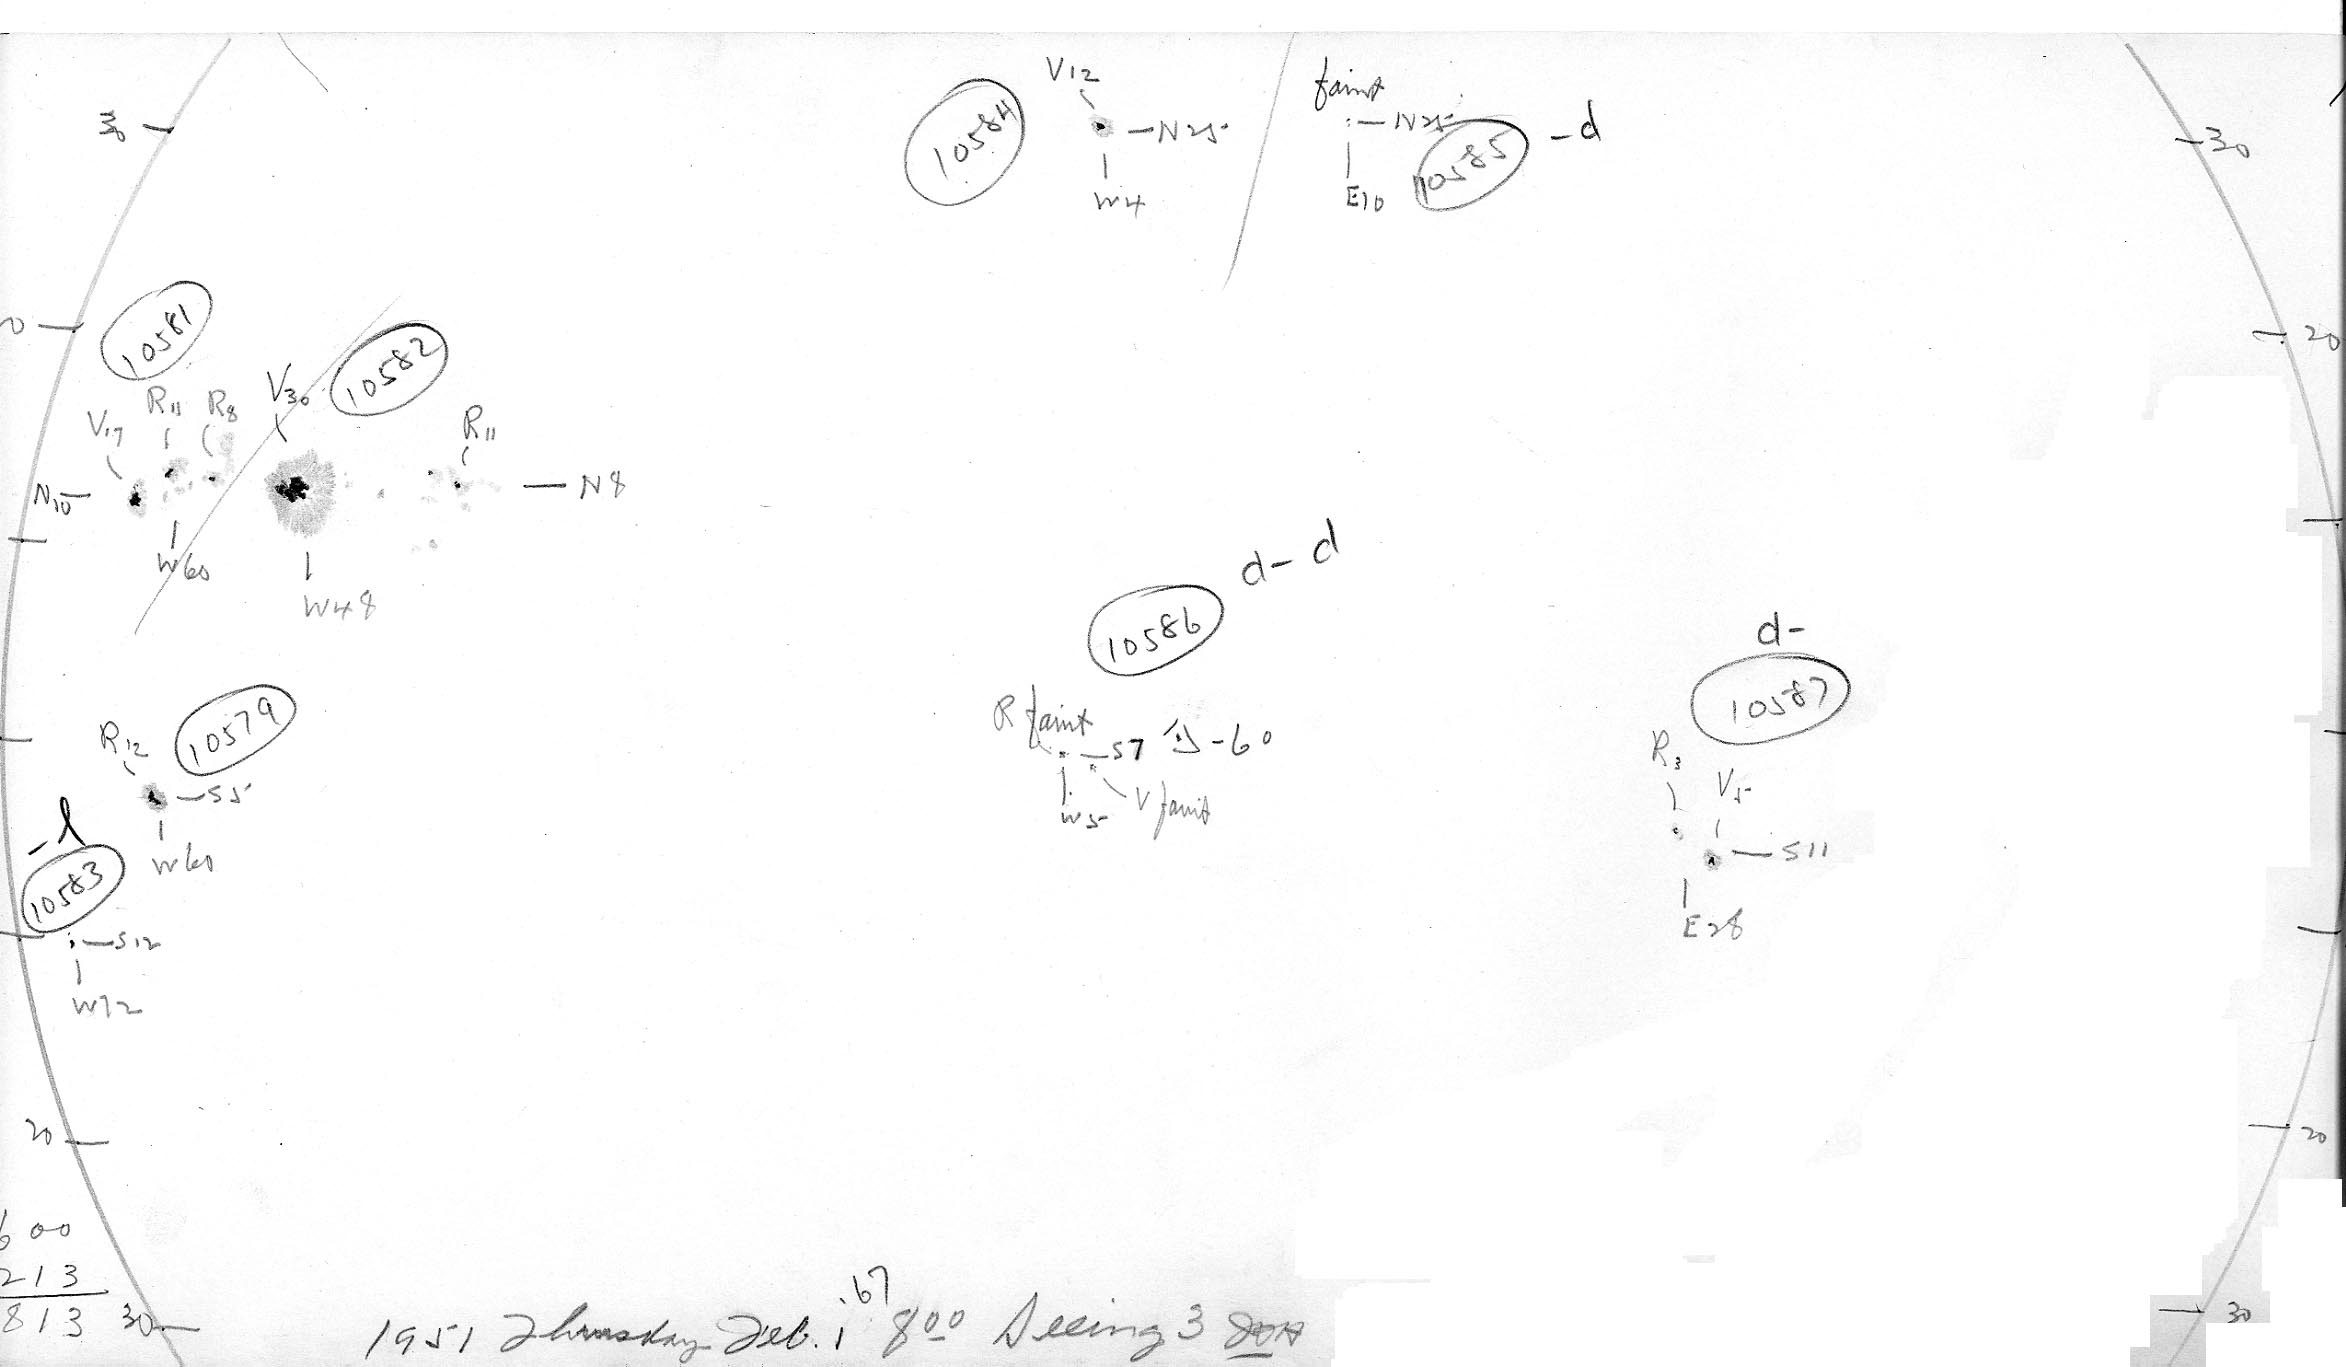 V12
faint
30
10584
N25
N25
10585
-d
30
W4
E10
10581
20
V30
10582
R11
R8
V17
R11
N10
N8
W60
W48
d-d
10586
d-
10587
10579
R12
R faint
S7
-60
R3
S5
V5
V faint
W5
-l
W60
S11
10583
E28
S12
W72
20
20
600
213
813
30
30
1951 Thursday Feb. 1.67 8 00 Seeing 3